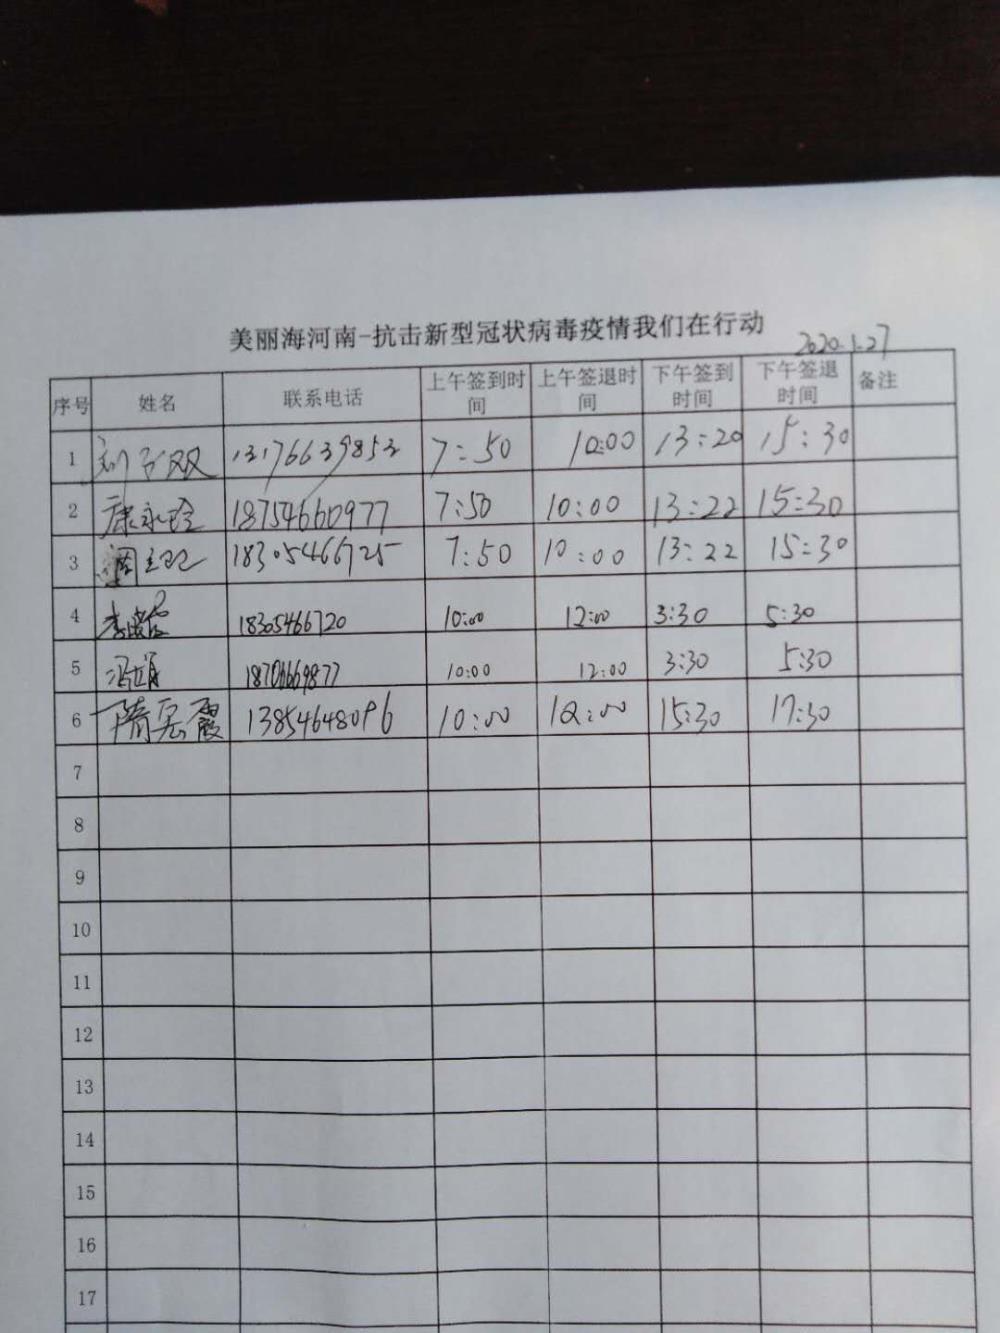 美丽海河南-抗击新型冠状病毒疫情我们在行动
2020.1.27
序号 姓名 联系电话 上午签到时间 上午签退时间 下午签到时间 下午签退时间 备注
1 13176639853 7:50 10:00 13:20 15:30
2 康永玲 18754660977 7:50 10:00 13:22 15:30
3 18305466725 7:50 10:00 13:22 15:30
4 18305466720 10:00 12:00 3:30 5:30
5 冯娟 18706669877 10:00 12:00 3:30 5:30
6 隋 霞 13854648096 10:00 12:00 15:30 17:30
7
8
9
10
11
12
13
14
15
16
17